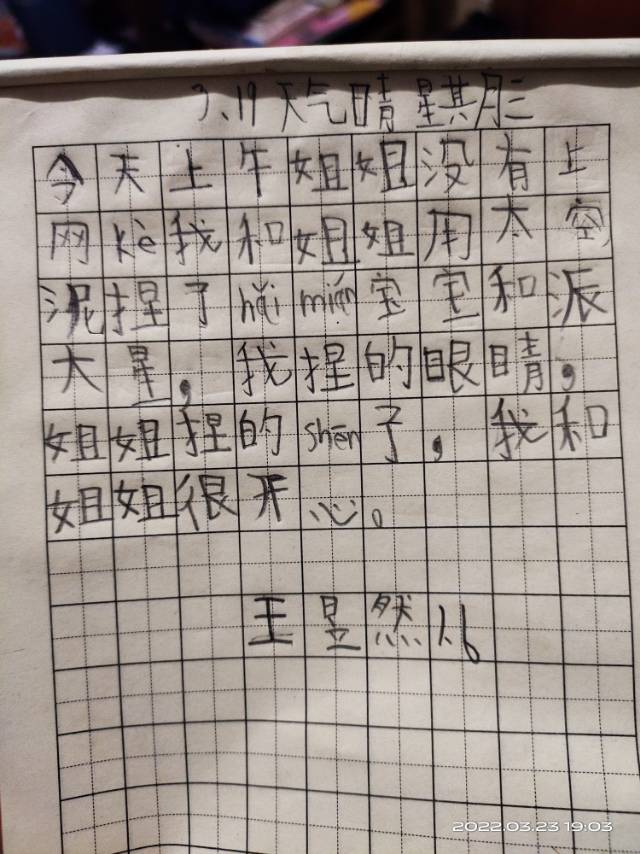 3.19 天气晴 星期三
今天上午姐姐没有上
网kè我和姐姐用太空
泥捏了hǎi mián宝宝和派
大星，我捏的眼睛，
姐姐捏的shēn子，我和
姐姐很开心。
王昱然
2022.03.23 19:03